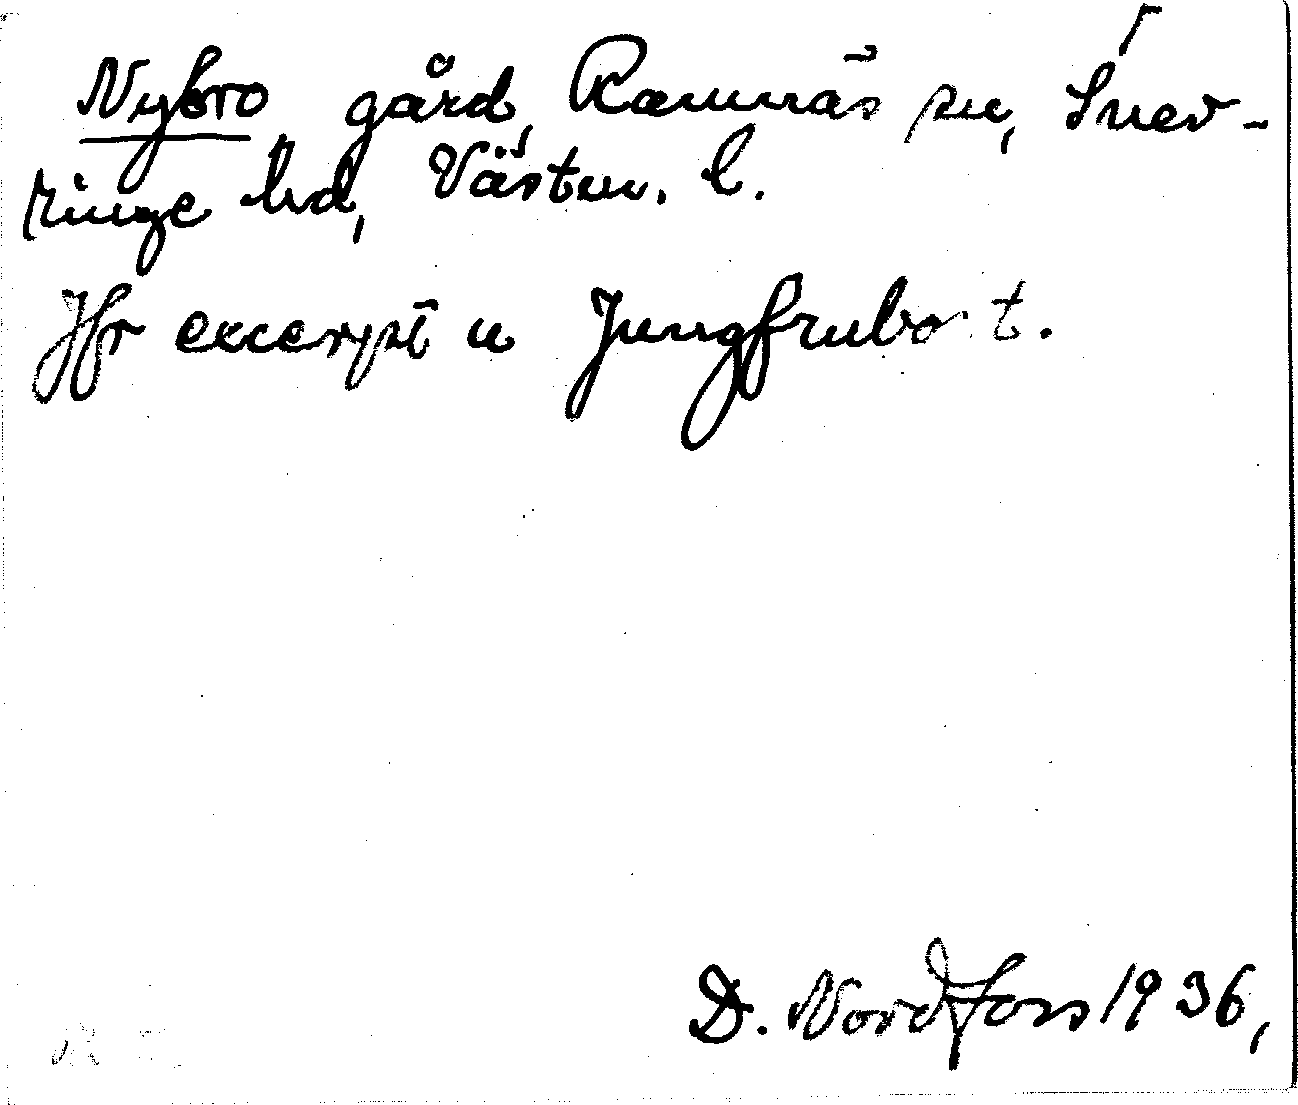 Nybro gård, Ramnäs sn, Snev-
ringe hd, Västm. l.
Jfr excerpt u Jungfrubo t.
D. Nordfors 1936,